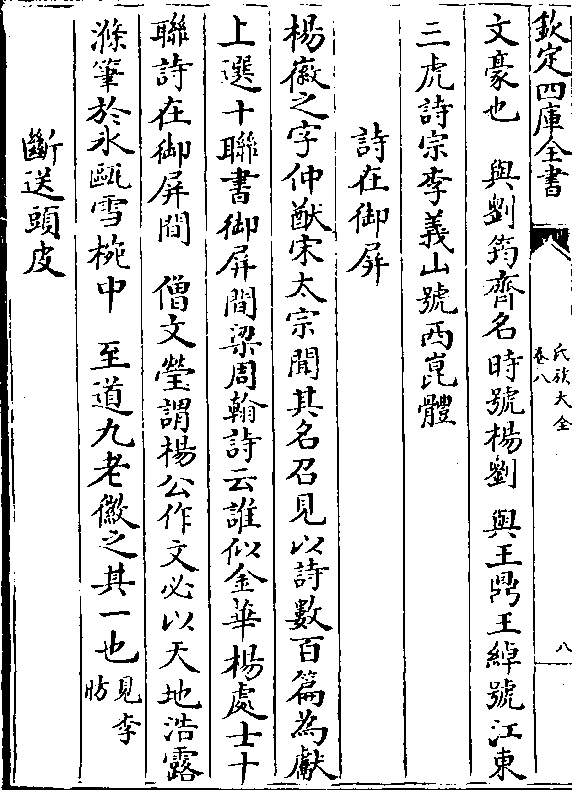 欽定四庫全書
氏族大全
卷八
八
文豪也　與劉筠齊名時號楊劉　與王鼎王綽號江東
三虎詩宗李義山號西崑體
詩在御屏
楊徽之字仲猷宋太宗聞其名召見以詩數百篇為獻
上選十聯書御屏間梁周翰詩云誰似金華楊處士十
聯詩在御屏間　僧文瑩謂楊公作文必以天地浩露
滌筆於氷甌雪椀中　至道九老徽之其一也見李昉
斷送頭皮